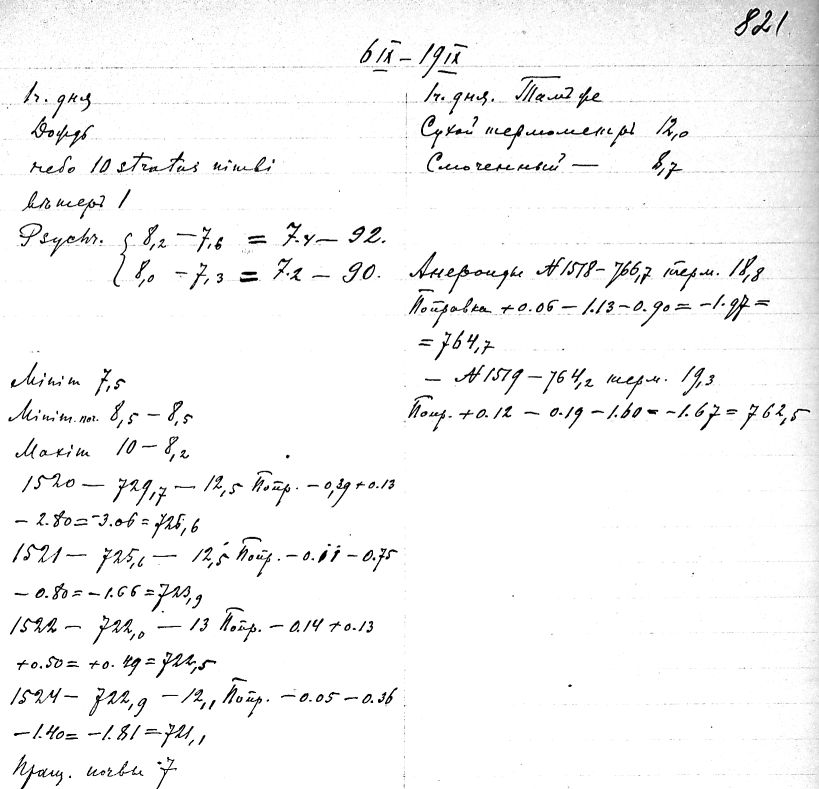 821
6 IX – 19 IX
1 ч. дня
Дождь
небо 10 stratus nimbi
вѣтеръ 1
Psychr. { 8,2 – 7,6 = 7.4 – 92.
8,0 – 7,3 = 7.2 – 90.
Minim 7,5
Minim. поч. 8,5 – 8,5
Maxim 10 – 8,2
1520 — 729,7 — 12,5 Попр. – 0,39 + 0.13
– 2.80 = – 3.06 = 726,6
1521 — 725,6 — 12,5 Попр. – 0.11 – 0.75
– 0.80 = – 1.66 = 723,9
1522 — 722,0 — 13 Попр. – 0.14 + 0.13
+ 0.50 = + 0.49 = 722,5
1524 — 722,9 — 12,1 Попр. – 0.05 – 0.36
– 1.40 = – 1.81 = 721,1
Пращ. почвы 7
1 ч. дня.
Сухой термометръ 12,0
Смоченный — 8,7
Анероиды № 1518 – 766,7 терм. 18,8
Поправка + 0.06 – 1.13 – 0.90 = – 1.97 =
= 764,7
— № 1519 – 764,2 терм. 19,3
Попр. + 0.12 – 0.19 – 1.60 = – 1.67 = 762,5